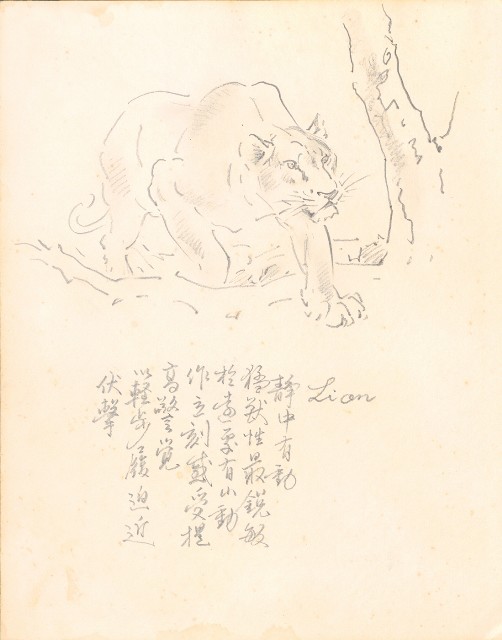 Lion
靜中有動
猛獸性最銳敏
於遠處有小動
作立刻感受提
高警覺
以輕步履迫近
伏擊